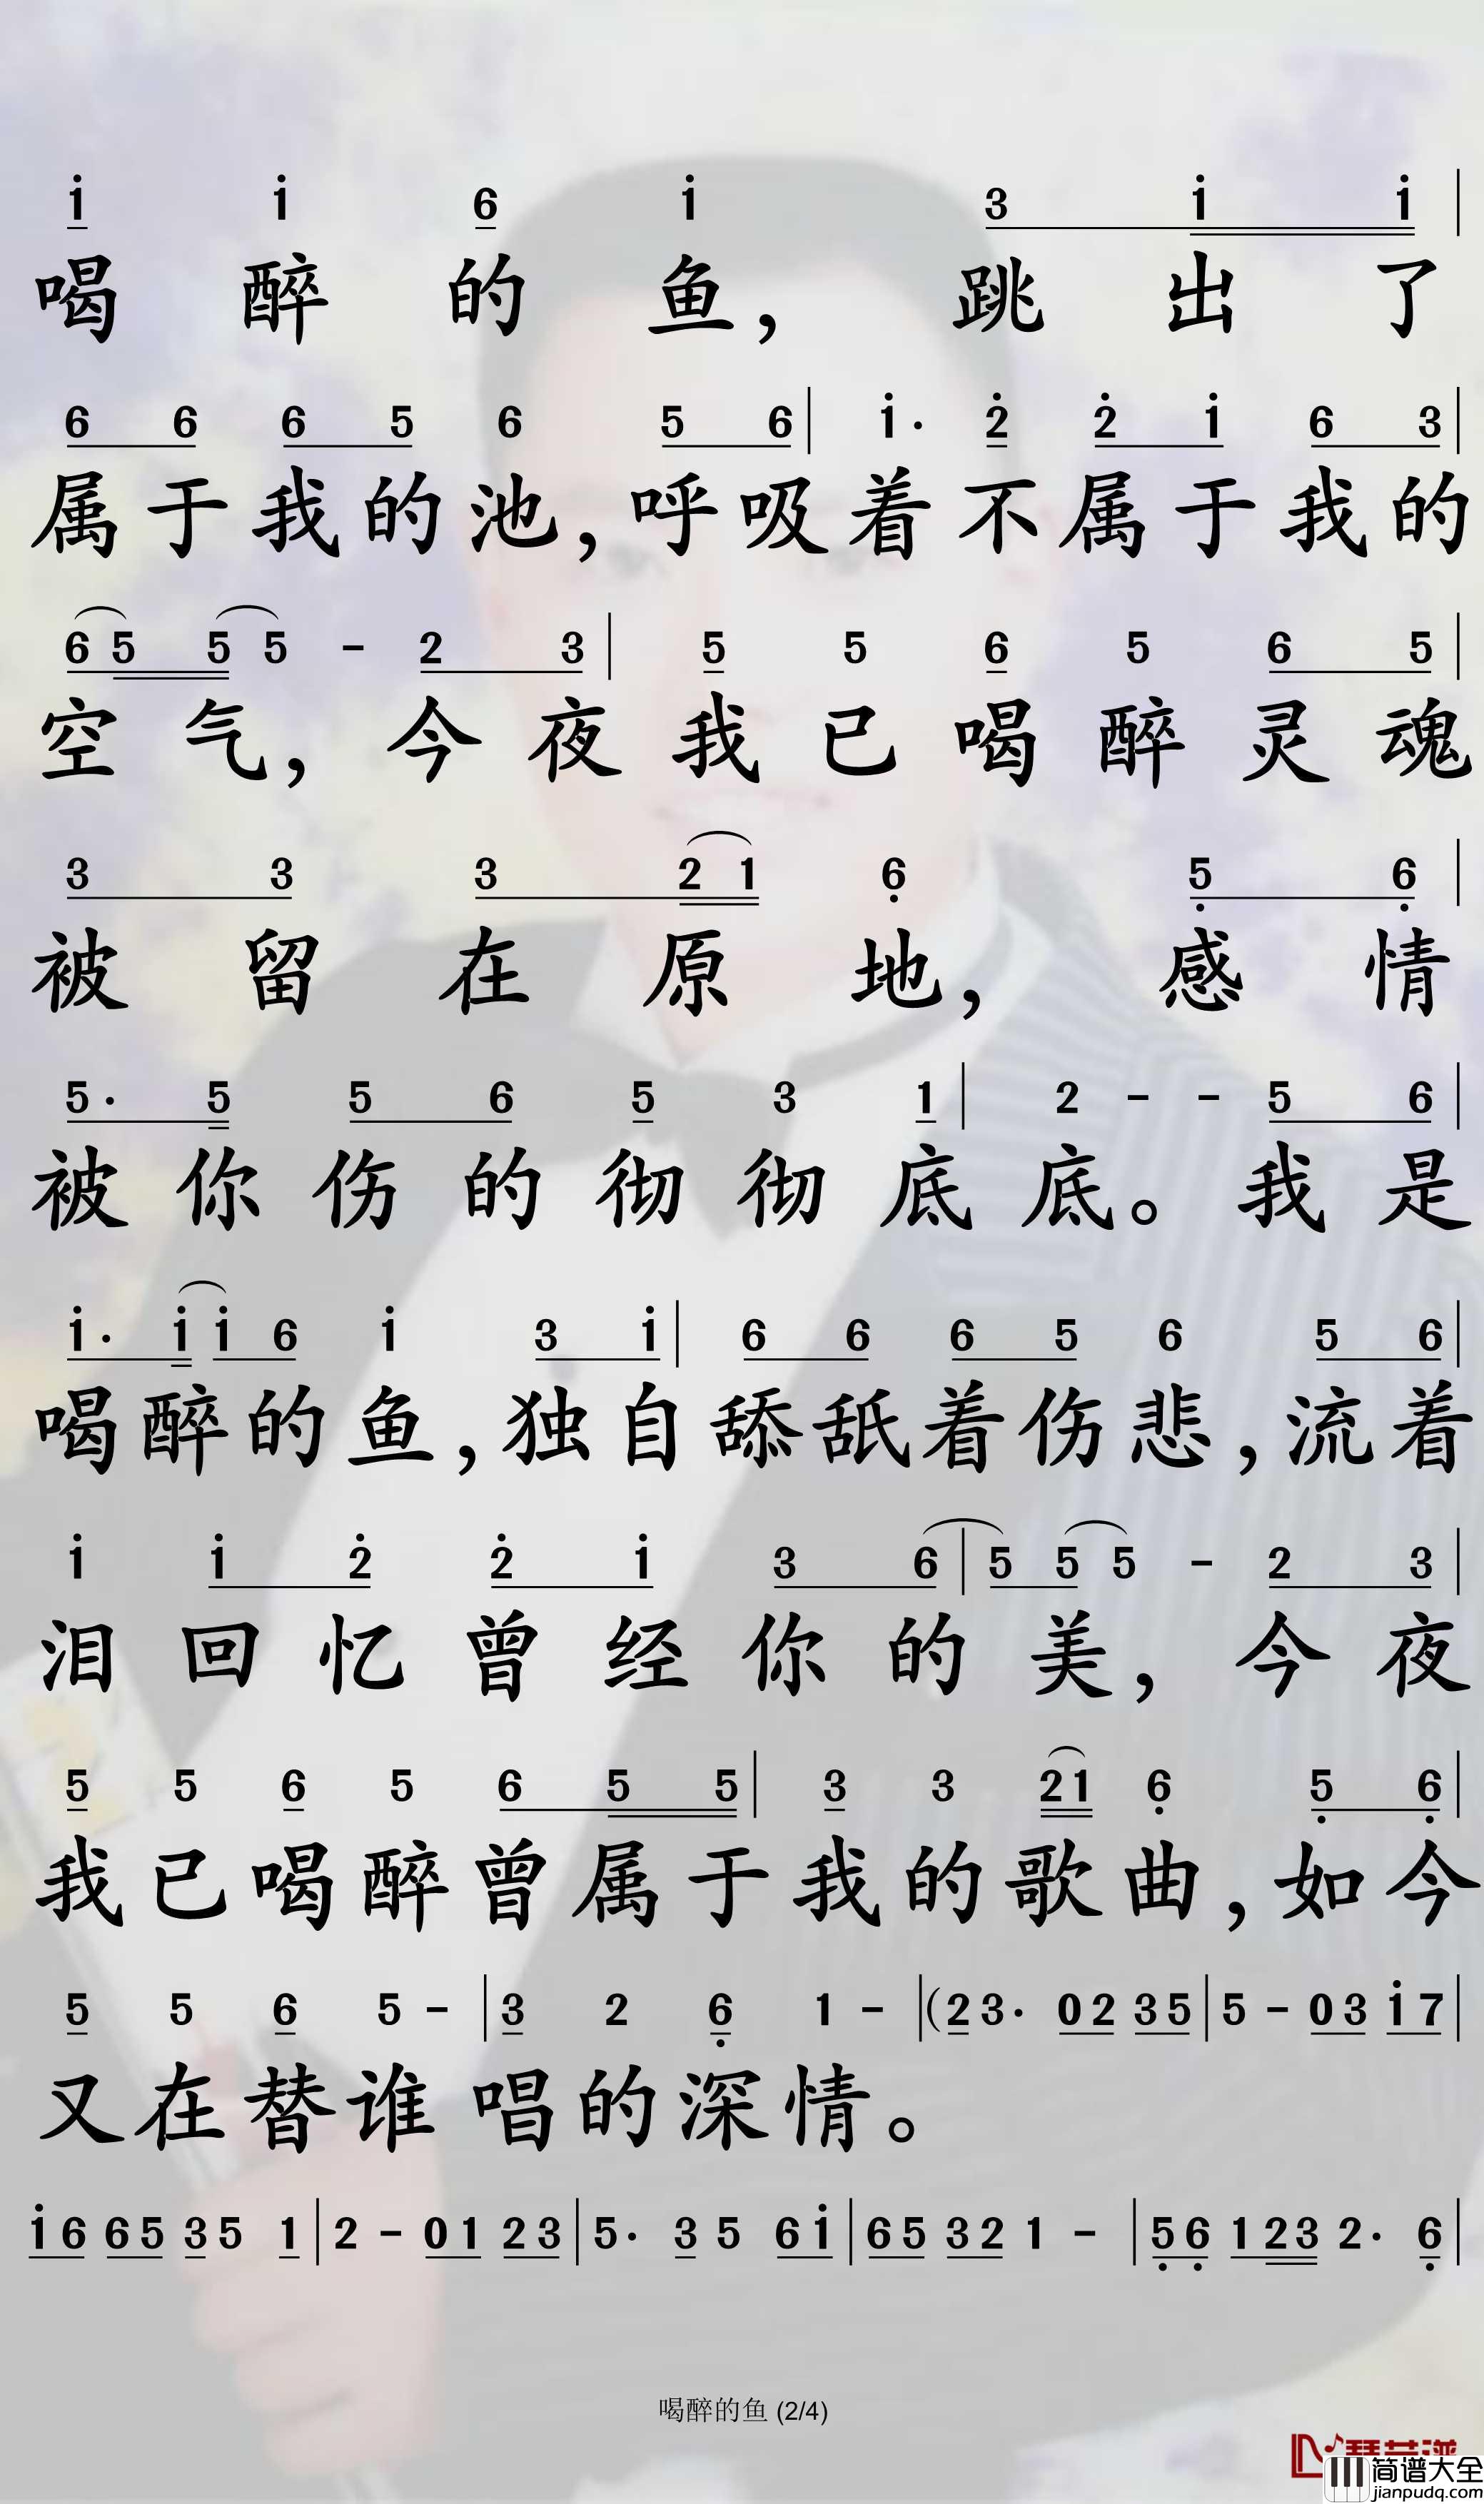 i i 6 i 3 i i
喝醉的鱼，跳出了
6 6 6 5 6 5 6 | i· 2̇ 2̇ i 6 3 |
属于我的池，呼吸着不属于我的
6 5 5 5 - 2 3 | 5 5 6 5 6 5 |
空气，今夜我已喝醉灵魂
3 3 3 2 1 6̣ 5̣ 6̣ |
被留在原地，感情
5· 5 5 6 5 3 1 | 2 - - 5 6 |
被你伤的彻彻底底。我是
i· i i 6 i 3 i | 6 6 6 5 6 5 6 |
喝醉的鱼，独自舔舐着伤悲，流着
i i 2̇ 2̇ i 3 6 | 5 5 5 - 2 3 |
泪回忆曾经你的美，今夜
5 5 6 5 6 5 5 | 3 3 2 1 6̣ 5̣ 6̣ |
我已喝醉曾属于我的歌曲，如今
5 5 6 5 - | 3 2 6̣ 1 - | (2 3· 0 2 3 5 | 5 - 0 3 i 7 |
又在替谁唱的深情。
i 6 6 5 3 5 1 | 2 - 0 1 2 3 | 5· 3 5 6 i | 6 5 3 2 1 - | 5̣ 6̣ 1 2 3 2· 6̣ |
喝醉的鱼 (2/4)
简谱大全
jianpudq.com